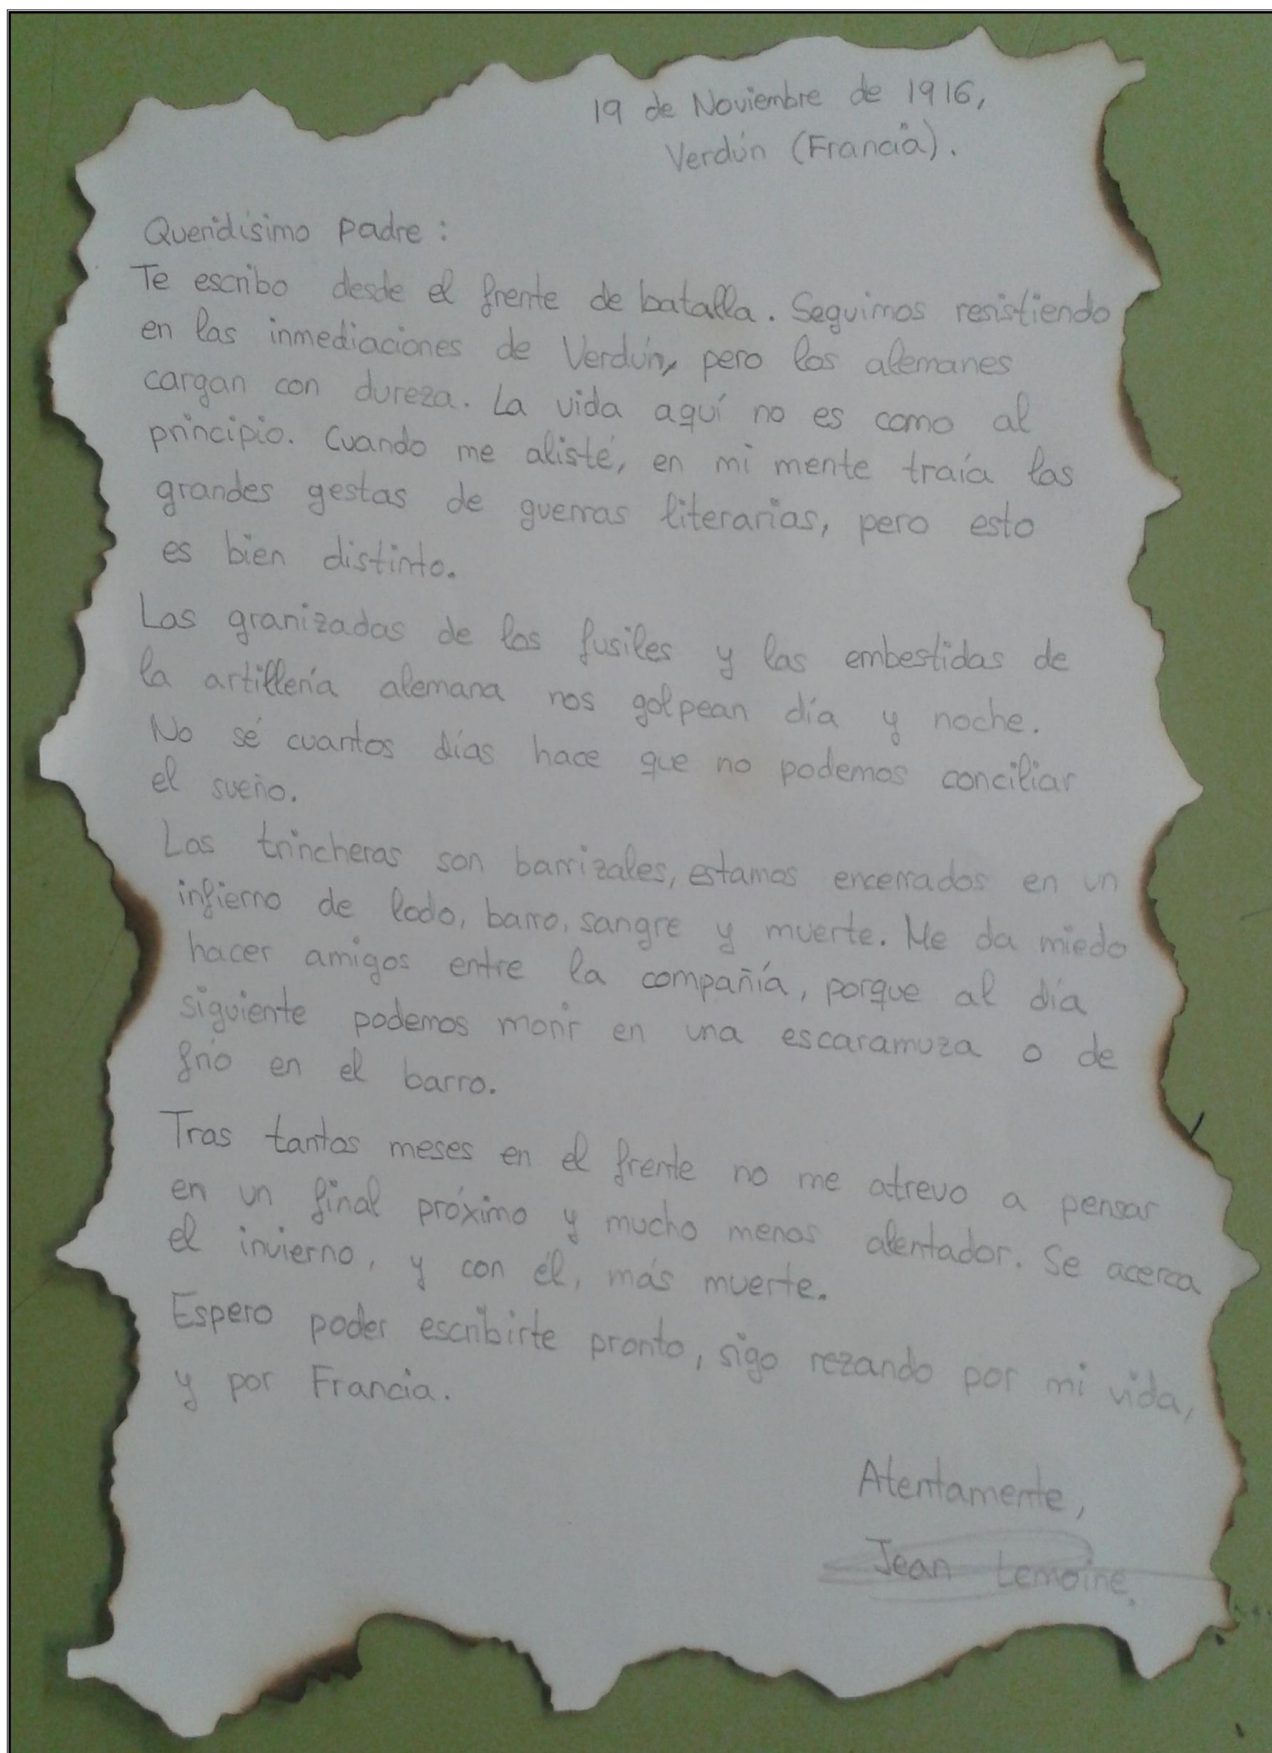 19 de Noviembre de 1916,
Verdún (Francia).
Queridísimo padre:
Te escribo desde el frente de batalla. Seguimos resistiendo
en las inmediaciones de Verdún, pero los alemanes
cargan con dureza. La vida aquí no es como al
principio. Cuando me alisté, en mi mente traía las
grandes gestas de guerras literarias, pero esto
es bien distinto.
Las granizadas de los fusiles y las embestidas de
la artillería alemana nos golpean día y noche.
No sé cuantos días hace que no podemos conciliar
el sueño.
Las trincheras son barrizales, estamos encerrados en un
infierno de lodo, barro, sangre y muerte. Me da miedo
hacer amigos entre la compañía, porque al día
siguiente podemos morir en una escaramuza o de
frío en el barro.
Tras tantos meses en el frente no me atrevo a pensar
en un final próximo y mucho menos alentador. Se acerca
el invierno, y con él, más muerte.
Espero poder escribirte pronto, sigo rezando por mi vida,
y por Francia.
Atentamente,
Jean Lemoine.